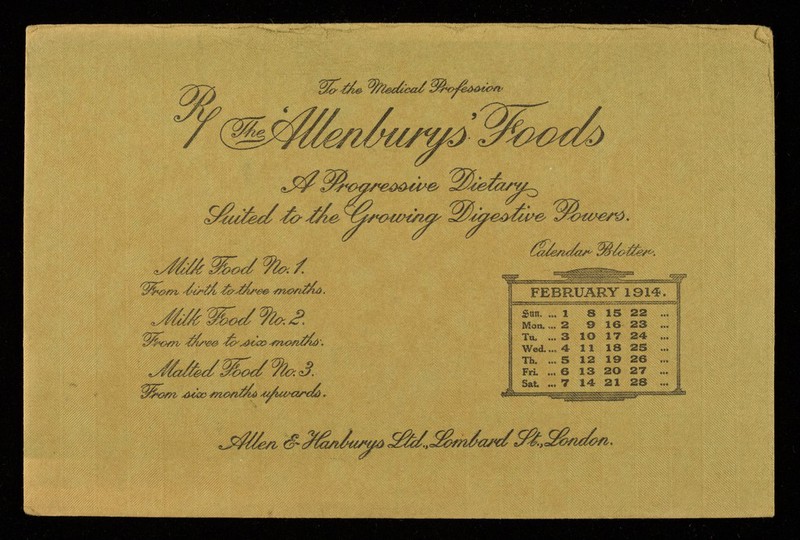 To the Medical Profession
Rx The 'Allenburys' Foods
A Progressive Dietary
Suited to the Growing Digestive Powers.
Milk Food No. 1.
From birth to three months.
Milk Food No. 2.
From three to six months.
Malted Food No. 3.
From six months upwards.
Calendar Blotter.
FEBRUARY 1914.
Sun. ... 1 8 15 22 ...
Mon. ... 2 9 16 23 ...
Tu. ... 3 10 17 24 ...
Wed. ... 4 11 18 25 ...
Th. ... 5 12 19 26 ...
Fri. ... 6 13 20 27 ...
Sat. ... 7 14 21 28 ...
Allen & Hanburys Ltd., Lombard St., London.